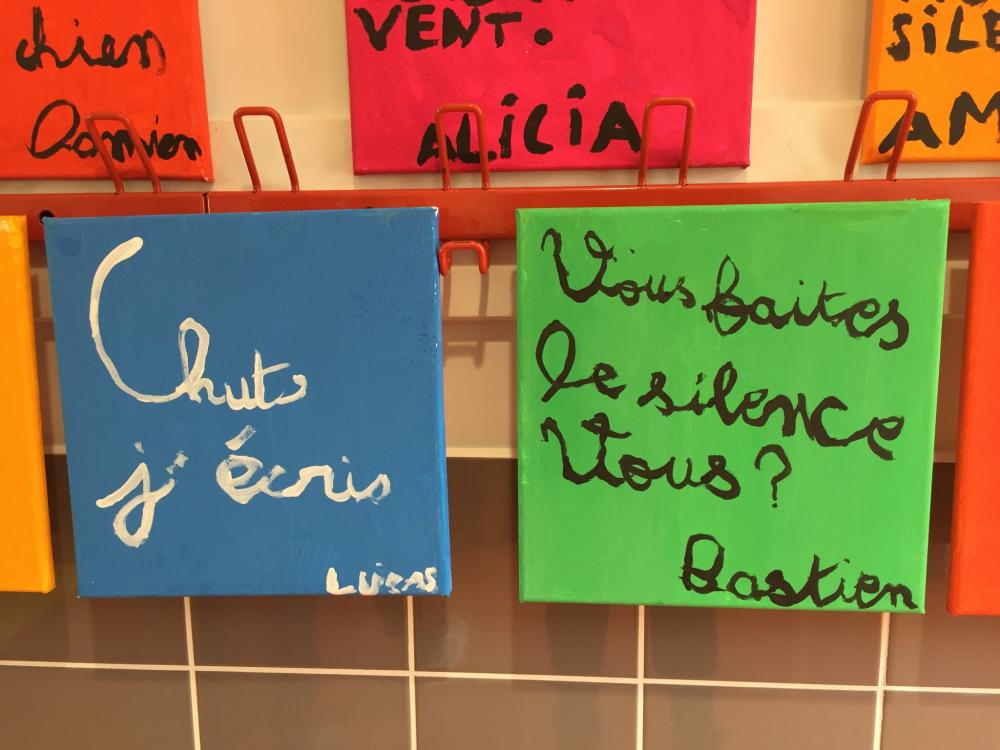 chien
Damien
VENT.
ALICIA
SILE
AM
Chut
j'écris
Lucas
Vous faites
le silence
Vous?
Bastien